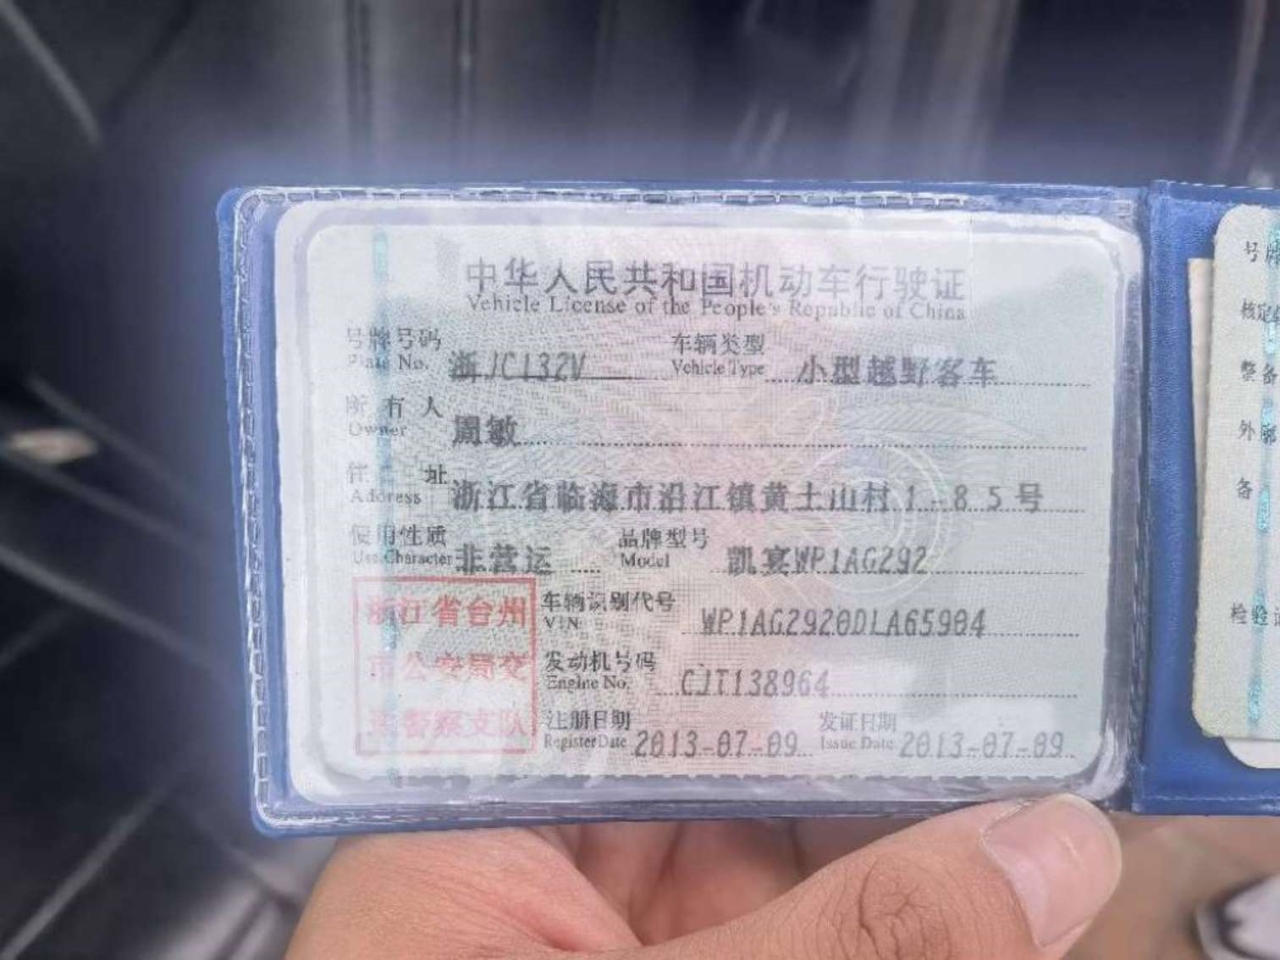 中华人民共和国机动车行驶证
Vehicle License of the People's Republic of China
号牌号码 浙JC132V 车辆类型 小型越野客车
Plate No. Vehicle Type
所有人 周敏
Owner
住址 浙江省临海市沿江镇黄土山村1-85号
Address
使用性质 非营运 品牌型号 凯宴WP1AG292
Use Character Model
浙江省台州
市公安局交
通警察支队
车辆识别代号 WP1AG2920DLA65904
VIN
发动机号码 CJT138964
Engine No.
注册日期 2013-07-09 发证日期 2013-07-09
Register Date Issue Date
号牌
核定
整备
外廓
备
检验